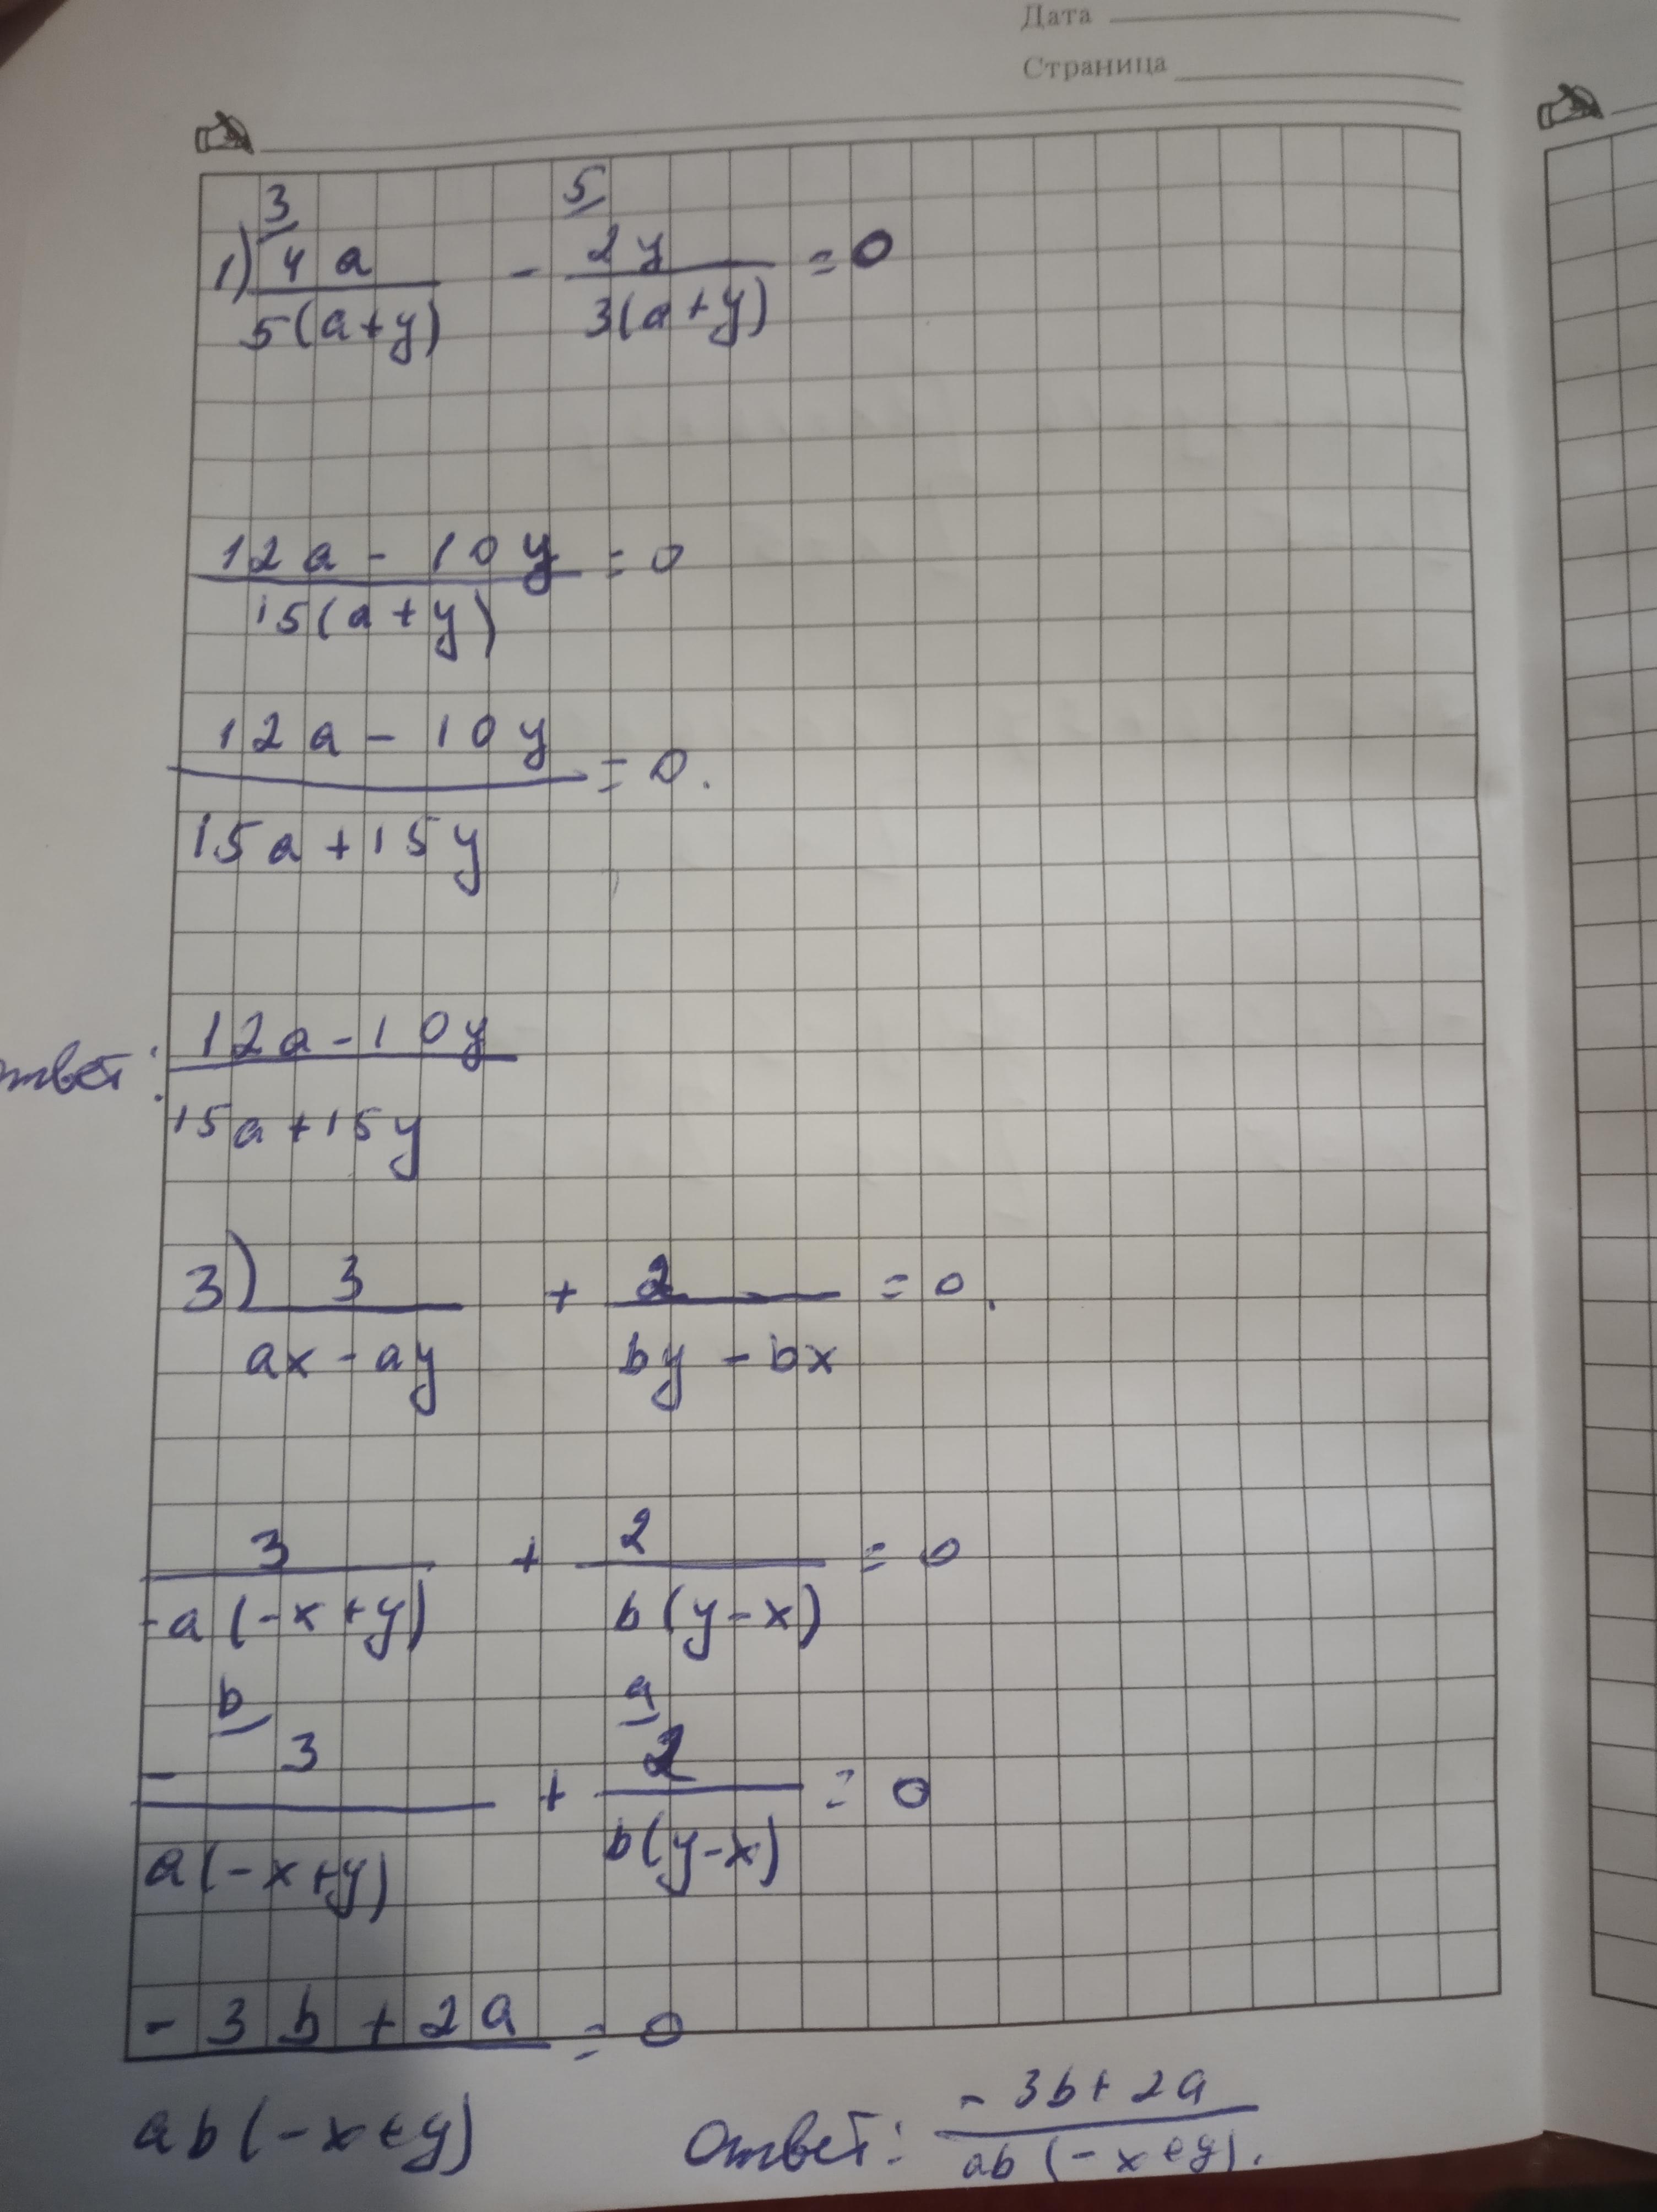 Дата
Страница
3 5
1) 4a/5(a+y) - 2y/3(a+y) = 0
12a - 10y/15(a+y) = 0
12a - 10y/15a+15y = 0.
твет: 12a-10y/15a+15y
3) 3/ax-ay + 2/by-bx = 0.
3/-a(-x+y) + 2/b(y-x) = 0
b a
-3/a(-x+y) + 2/b(y-x) = 0
-3b+2a/ab(-x+y) = 0
Ответ: -3b+2a/ab(-x+y).